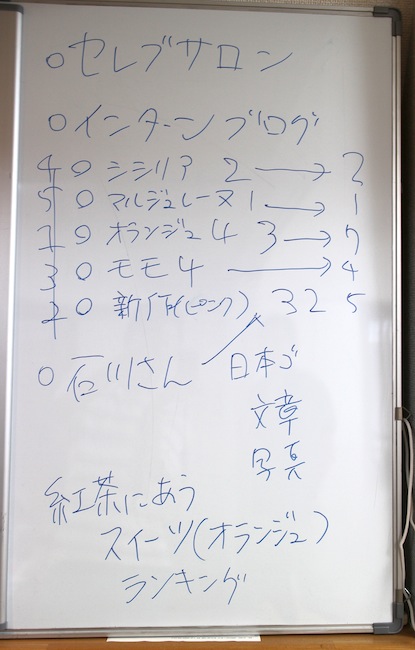 ○セレブサロン
○インターンブログ
4 ○ シシリア 2 → 2
5 ○ マルジュレーヌ 1 → 1
1 ○ オランジュ 4 3 → 7
3 ○ モモ 4 → 4
2 ○ 新作(ピンク) 3 2 5
○ 石川さん
日本ゴ
文章
写真
紅茶にあう
スイーツ(オランジュ)
ランキング